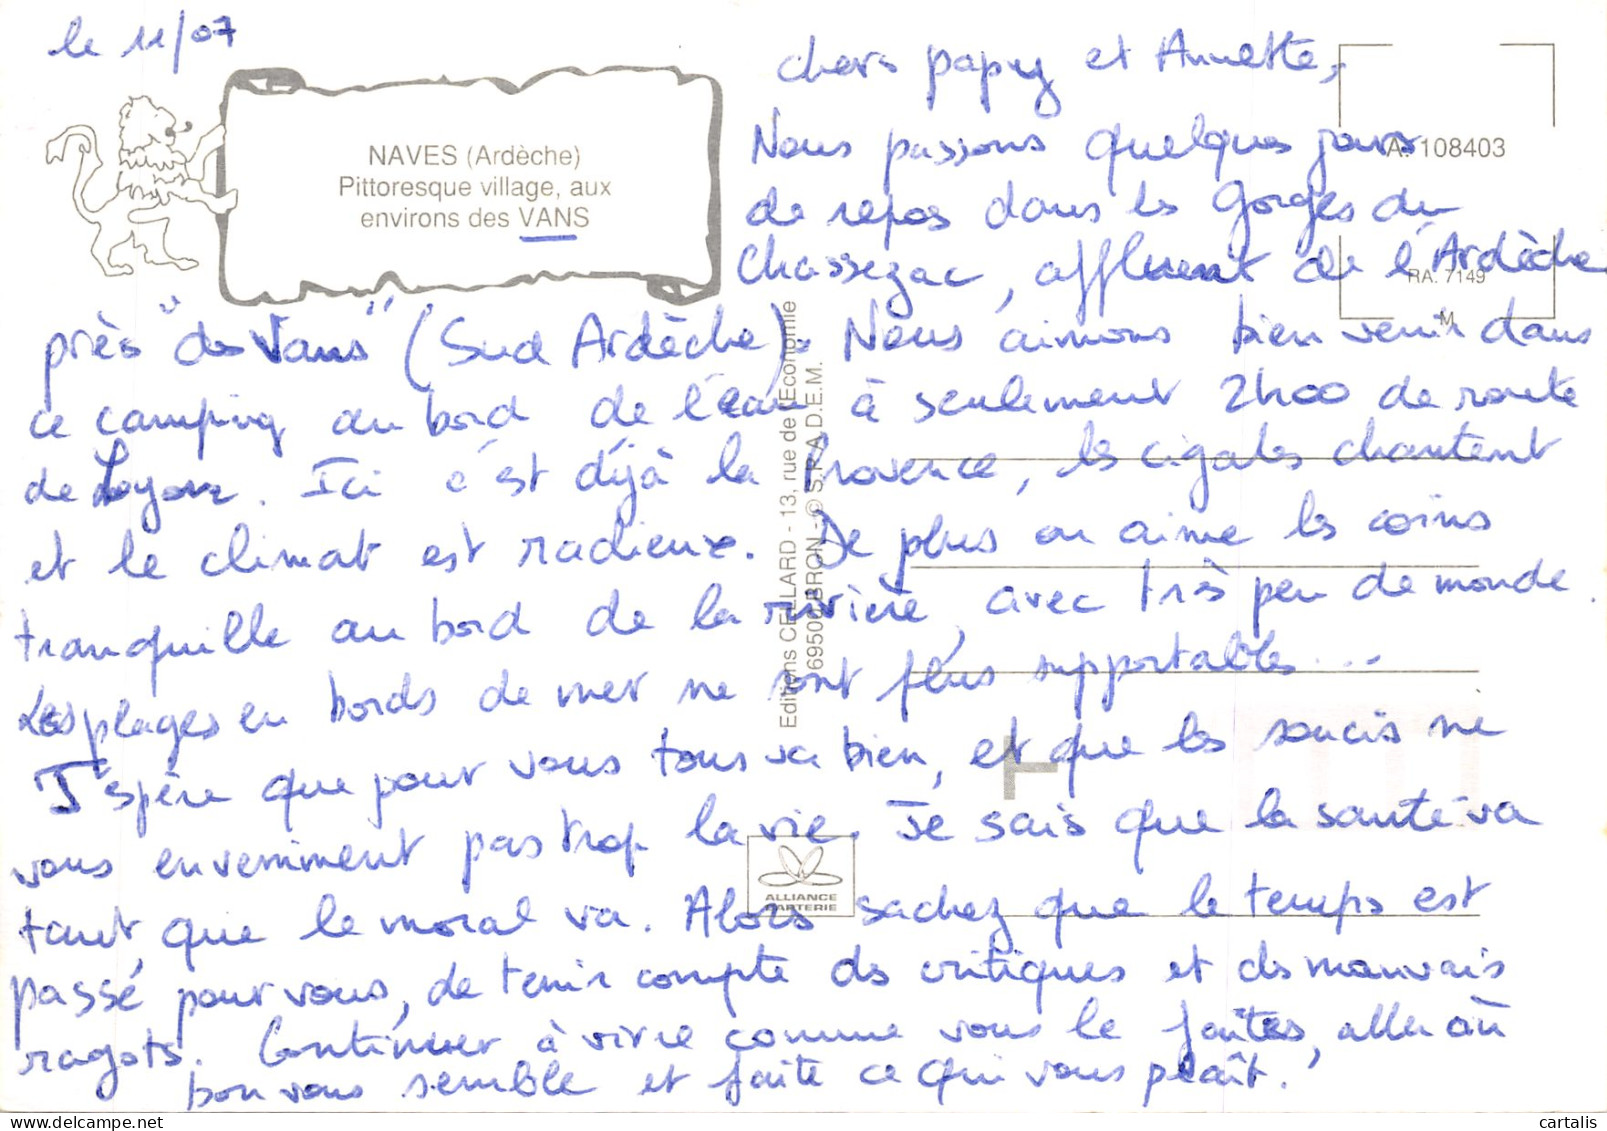 le 11/07
NAVES (Ardèche)
Pittoresque village, aux
environs des VANS
chers papy et Annette,
Nous passons quelques jours
de repos dans les Gorges du
Chassezac, affluent de l'Ardèche
près "des Vans" (Sud Ardèche). Nous aimons bien venir dans
ce camping au bord de l'eau, à seulement 2h00 de route
de Lyon. Ici c'est déjà la Provence, les cigales chantent
et le climat est radieux. De plus on aime les coins
tranquille au bord de la rivière, avec très peu de monde.
Les plages en bords de mer ne sont plus supportables...
J'espère que pour vous tous va bien, et que les soucis ne
vous enveniment pas trop la vie. Je sais que la santé va
tant que le moral va. Alors sachez que le temps est
passé pour vous, de tenir compte des critiques et des mauvais
ragots. Continuer à vivre comme vous le faites, aller où
bon vous semble et faite ce qui vous plaît.
A. 108403
RA. 7149
M
Editions CELLARD - 13, rue de l'Economie
69500 BRON - © S.P.A.D.E.M.
ALLIANCE
CARTERIE
cartalis
www.delcampe.net